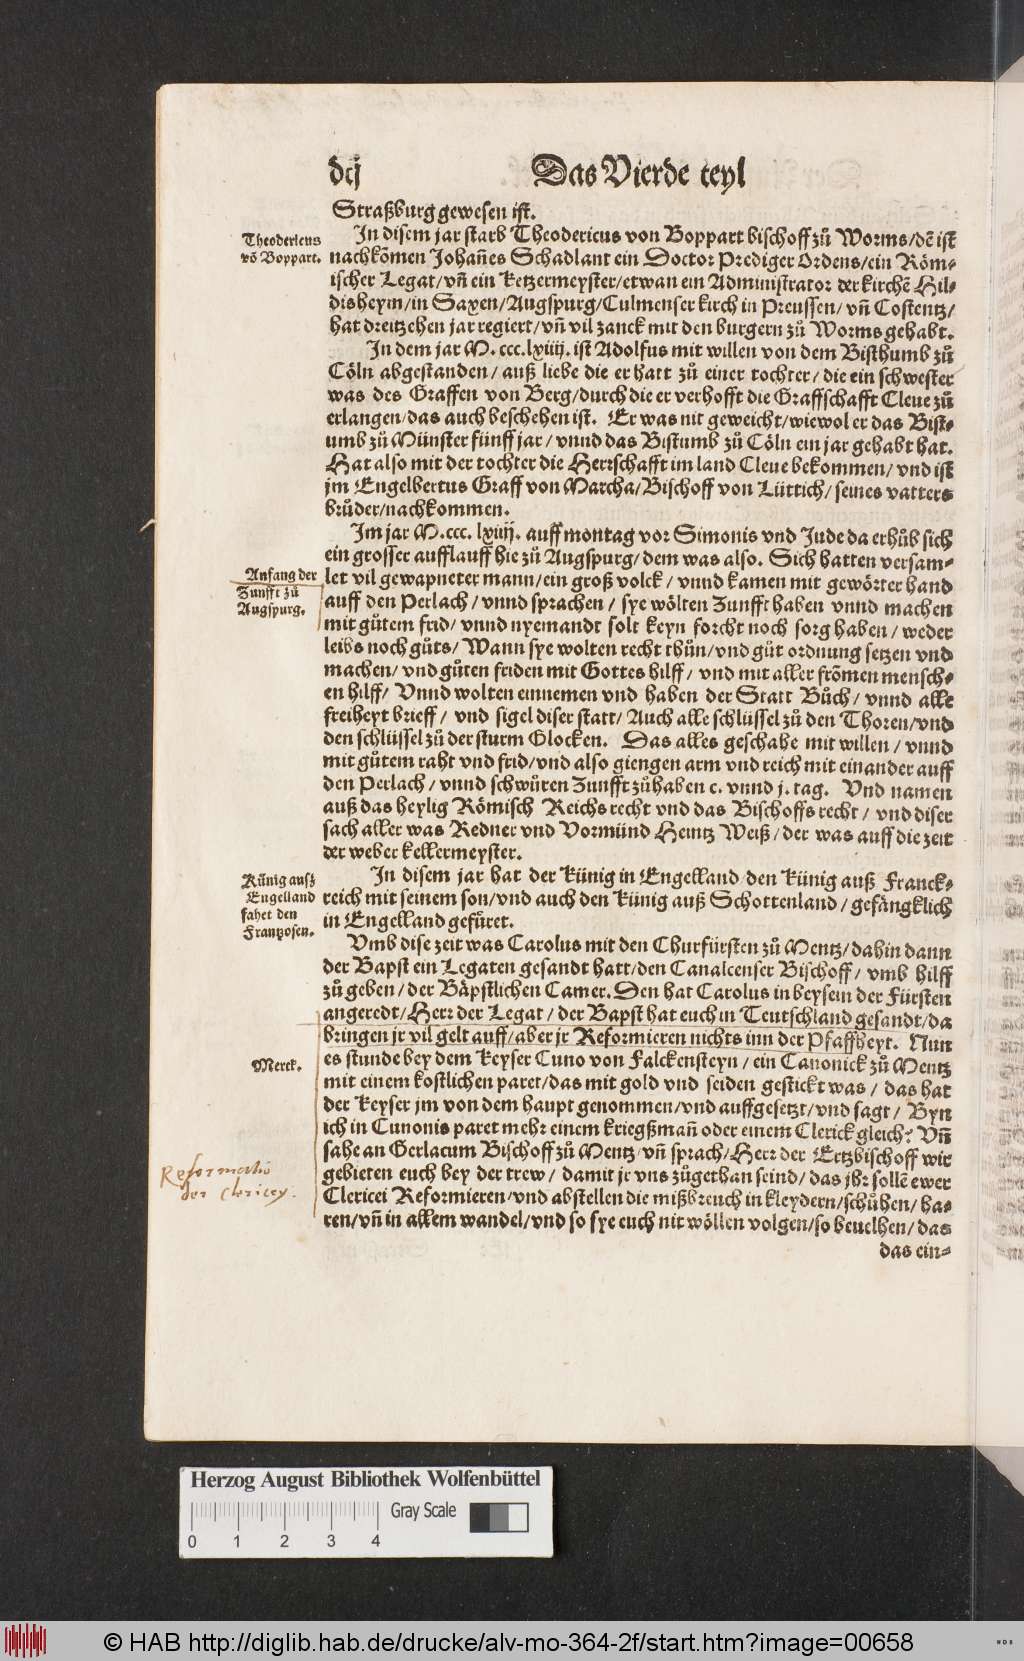 dcj
Das Vierde teyl
Straßburg gewesen ist.
Theodericus
võ Boppart.
In disem jar starb Theodericus von Boppart bischoff zů Worms/dẽ ist
nachkõmen Johañes Schadlant ein Doctor Prediger Ordens/ein Röm-
ischer Legat/vñ ein Ketzermeyster/etwan ein Administrator der kirchẽ Hil-
disheym/in Saxen/Augspurg/Culmenser kirch in Preussen/vñ Costentz/
hat dreitzehen jar regiert/vñ vil zanck mit den burgern zů Worms gehabt.
In dem jar M. ccc.lxiiij. ist Adolfus mit willen von dem Bisthumb zů
Cöln abgestanden/auß liebe die er hatt zů einer tochter/die ein schwester
was des Graffen von Berg/durch die er verhofft die Graffschafft Cleue zů
erlangen/das auch beschehen ist. Er was nit geweicht/wiewol er das Bist-
umb zů Münster fünff jar/vnnd das Bistumb zů Cöln ein jar gehabt hat.
Hat also mit der tochter die Herrschafft im land Cleue bekommen/vnd ist
jm Engelbertus Graff von Marcha/Bischoff von Lüttich/seines vatters
brůder/nachkommen.
Im jar M.ccc. lxiiij. auff montag vor Simonis vnd Jude da erhůb sich
ein grosser aufflauff hie zů Augspurg/dem was also. Sich hatten versam-
Anfang der
Zunfft zů
Augspurg.
let vil gewapneter mann/ein groß volck/vnnd kamen mit gewörter hand
auff den Perlach/vnnd sprachen/sye wölten Zunfft haben vnnd machen
mit gůtem frid/vnnd nyemandt solt keyn forcht noch sorg haben/weder
leibs noch gůts/Wann sye wolten recht thůn/vnd gůt ordnung setzen vnd
machen/vnd gůten friden mit Gottes hilff/vnd mit aller frõmen mensch-
en hilff/Vnnd wolten einnemen vnd haben der Statt Bůch/vnnd alle
freiheyt brieff/vnd sigel diser statt/Auch alle schlüssel zů den Thoren/vnd
den schlüssel zů der sturm Glocken. Das alles geschahe mit willen/vnnd
mit gůtem raht vnd frid/vnd also giengen arm vnd reich mit einander auff
den Perlach/vnnd schwůren Zunfft zůhaben c. vnnd j. tag. Vnd namen
auß das heylig Römisch Reichs recht vnd das Bischoffs recht/vnd diser
sach aller was Redner vnd Vormünd Heintz Weiß/der was auff die zeit
der weber kellermeyster.
Künig ausz
Engelland
fahet den
Frantzosen.
In disem jar hat der Künig in Engelland/den Künig auß Franck-
reich mit seinem son/vnd auch den Künig auß Schottenland/gefängklich
in Engelland gefüret.
Vmb dise zeit was Carolus mit den Churfürsten zů Mentz/dahin dann
der Bapst ein Legaten gesandt hatt/den Canalcenser Bischoff/vmb hilff
zů geben/der Bäpstlichen Camer. Den hat Carolus in beysein der Fürsten
angeredt/Herr der Legat/der Bapst hat euch in Teutschland gesandt/da
bringen jr vil gelt auff/aber jr Reformieren nichts inn der Pfaffheyt. Nun
Merck.
es stunde bey dem Keyser Cuno von Falckensteyn/ein Canonick zů Mentz
mit einem kostlichen paret/das mit gold vnd seiden gestickt was/das hat
der Keyser jm von dem haupt genommen/vnd auffgesetzt/vnd sagt/Byn
ich in Cunonis paret mehr einem kriegßmañ oder einem Clerick gleich? Vñ
sahe an Gerlacum Bischoff zů Mentz/vñ sprach/Herr der Ertzbischoff wir
Reformatio
der Clericey.
gebieten euch bey der trew/damit jr vns zůgethan seind/das jhr sollẽ ewer
Clericei Reformieren/vnd abstellen die mißbreuch in kleydern/schůhen/ha-
ren/vñ in allem wandel/vnd so sye euch nit wöllen volgen/so beuelhen/das
das ein-
Herzog August Bibliothek Wolfenbüttel
Gray Scale
0 1 2 3 4
© HAB http://diglib.hab.de/drucke/alv-mo-364-2f/start.htm?image=00658